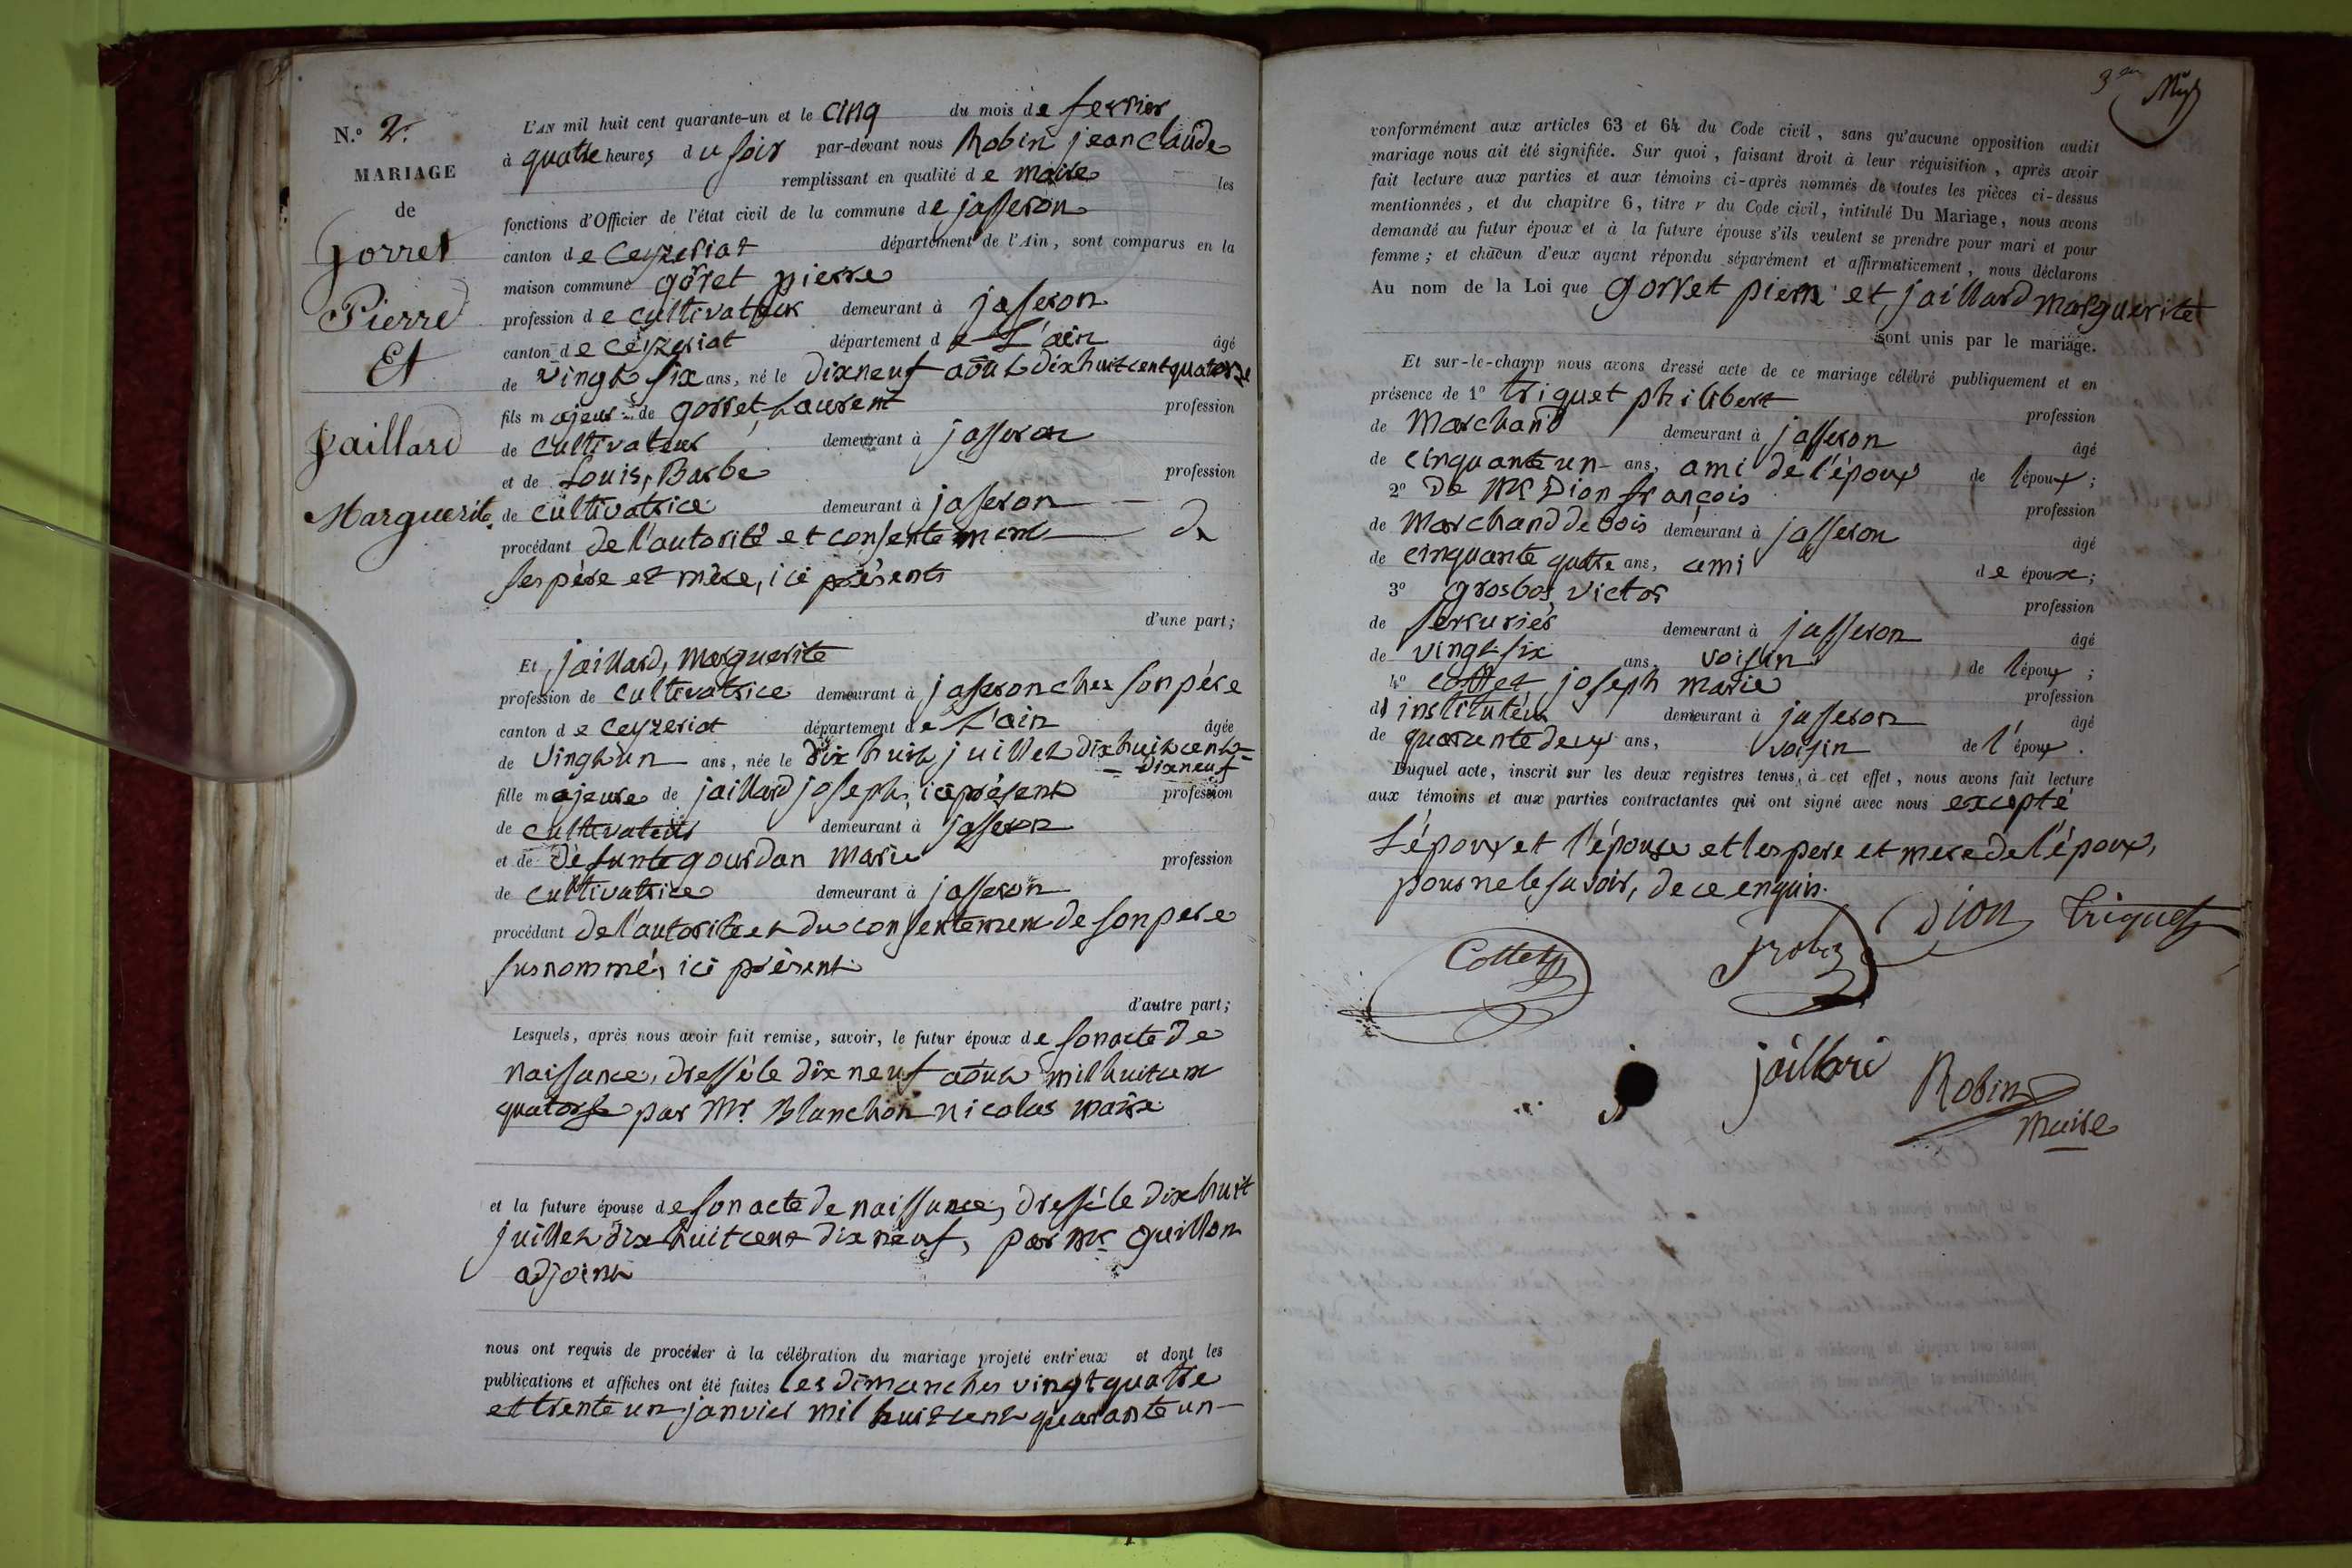 N.º 2.
MARIAGE
de
Gorret
Pierre
Et
Jaillard
Marguerite.
L'AN mil huit cent quarante-un et le cinq du mois de fevrier
à quatre heures du soir par-devant nous Robin jean claude
remplissant en qualité de maire les
fonctions d'Officier de l'état civil de la commune de jasseron
canton de Ceyzeriat département de l'Ain, sont comparus en la
maison commune gorret pierre
profession de cultivateur demeurant à jasseron
canton de ceyzeriat département de L'ain âgé
de vingt six ans, né le dixneuf août dixhuitcentquatorze
fils majeur de gorret, Laurent profession
de cultivateur demeurant à jasseron
et de Louis, Barbe profession
de cultivatrice demeurant à jasseron
procédant de l'autorité et consentement de
ses père et mère, ici présents
d'une part;
Et jaillard, marguerite
profession de cultivatrice demeurant à jasseron chez son père
canton de ceyzeriat département de L'ain âgée
de vingt un ans, née le dix huit juillet dix huit cent
dixneuf
fille majeure de jaillard joseph, ici présent profession
de cultivateur demeurant à jasseron
et de défunte gourdan marie profession
de cultivatrice demeurant à jasseron
procédant de l'autorité et du consentement de son père
susnommé, ici présent
d'autre part;
Lesquels, après nous avoir fait remise, savoir, le futur époux de son acte de
naissance, dressé le dix neuf août mil huit cent
quatorze par Mr. Blanchon nicolas maire
et la future épouse de son acte de naissance, dressé le dix huit
juillet dix huit cent dix neuf, par Mr guillon
adjoint
nous ont requis de procéder à la célébration du mariage projeté entr'eux et dont les
publications et affiches ont été faites les dimanches vingt quatre
et trente un janvier mil huit cent quarante un
conformément aux articles 63 et 64 du Code civil, sans qu'aucune opposition audit
mariage nous ait été signifiée. Sur quoi, faisant droit à leur réquisition, après avoir
fait lecture aux parties et aux témoins ci-après nommés de toutes les pièces ci-dessus
mentionnées, et du chapitre 6, titre v du Code civil, intitulé Du Mariage, nous avons
demandé au futur époux et à la future épouse s'ils veulent se prendre pour mari et pour
femme; et chacun d'eux ayant répondu séparément et affirmativement, nous déclarons
Au nom de la Loi que gorret pierre et jaillard marguerite
sont unis par le mariage.
Et sur-le-champ nous avons dressé acte de ce mariage célébré publiquement et en
présence de 1º triquet philibert profession
de marchand demeurant à jasseron âgé
de cinquante un ans, ami de l'époux de l'époux;
2º de Mr Dion françois profession
de marchand de bois demeurant à jasseron âgé
de cinquante quatre ans, ami de époux;
3º grosbos, victor profession
de serrurier demeurant à jasseron âgé
de vingt six ans, voisin de l'époux;
4º cottet joseph marie profession
d'instituteur demeurant à jasseron âgé
de quarante deux ans, voisin de l'époux.
Duquel acte, inscrit sur les deux registres tenus, à cet effet, nous avons fait lecture
aux témoins et aux parties contractantes qui ont signé avec nous excepté
L'époux et l'épouse et les pere et mere de l'époux,
pour ne le savoir, de ce enquis.
Dion Triquet
Cottet
jaillard
Robin
maire